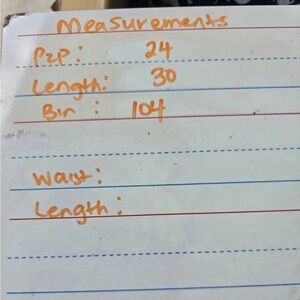 Measurements
P2P: 24
Length: 30
Bin : 104
Waist:
Length: